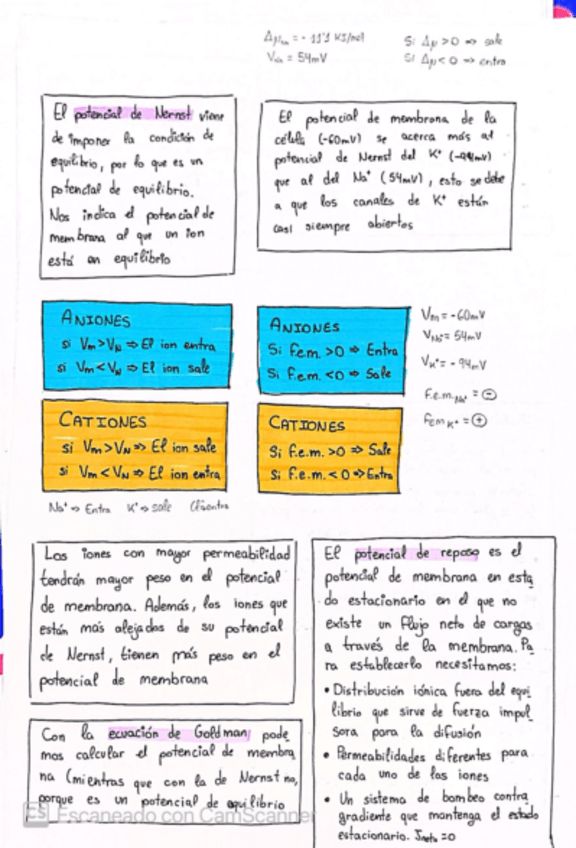 Si Δμ>0 ⇒ sale
V_Na = 54mV
Si Δμ<0 ⇒ entra
El potencial de Nernst viene
de imponer la condición de
equilibrio, por lo que es un
potencial de equilibrio.
Nos indica el potencial de
membrana al que un ion
está en equilibrio
El potencial de membrana de la
célula (-60mV) se acerca más al
potencial de Nernst del K⁺ (-94mV)
que al del Na⁺ (54mV), esto se debe
a que los canales de K⁺ están
casi siempre abiertos
ANIONES
si Vm>V_N ⇒ El ion entra
si Vm<V_N ⇒ El ion sale
ANIONES
Si f.e.m. >0 ⇒ Entra
Si f.e.m. <0 ⇒ Sale
Vm = -60mV
V_Na⁺ = 54mV
V_K⁺ = -94mV
F.e.m._Na⁺ = ⊖
Fem_K⁺ = ⊕
CATIONES
si Vm>V_N ⇒ El ion sale
si Vm<V_N ⇒ El ion entra
CATIONES
Si f.e.m. >0 ⇒ Sale
Si f.e.m. <0 ⇒ Entra
Na⁺ ⇒ Entra K⁺ ⇒ sale
Los iones con mayor permeabilidad
tendrán mayor peso en el potencial
de membrana. Además, los iones que
están más alejados de su potencial
de Nernst, tienen más peso en el
potencial de membrana
Con la ecuación de Goldman, pode
mos calcular el potencial de membra
na (mientras que con la de Nernst no,
porque es un potencial de equilibrio
El potencial de reposo es el
potencial de membrana en esta
do estacionario en el que no
existe un flujo neto de cargas
a través de la membrana. Pa
ra establecerlo necesitamos:
• Distribución iónica fuera del equi
librio que sirve de fuerza impul
sora para la difusión
• Permeabilidades diferentes para
cada uno de los iones
• Un sistema de bombeo contra
gradiente que mantenga el estado
estacionario. J_neto = 0
CS Escaneado con CamScanner